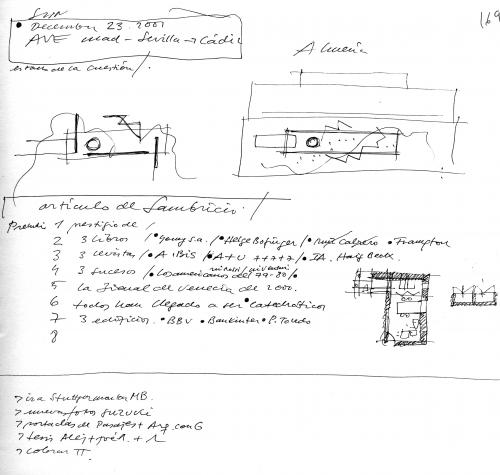 169
Sun
• December 23 2001
AVE mad - Sevilla → Cádiz
estado de la cuestión /.
Almería
artículo de Sambricio. /
1 prestigio de /
2 3 libros / • g.a. / • Helge Bofinger / • • Frampton
3 3 revistas / • A Ibis / • A+U +++++ / • IA.
4 3 sucesos / • Los americanos del 77-80 / •
5 La Bienal de Venecia de 2000.
6 todos han llegado a ser catedráticos
7 3 edificios. • BBV • Bankinter • P. Toledo
8
> ir a MB.
> nuevas fotos Suzuki
> portadas de Pasajes + Arq. con G
> tesis Alej + José R. + 1
> colorar TT.